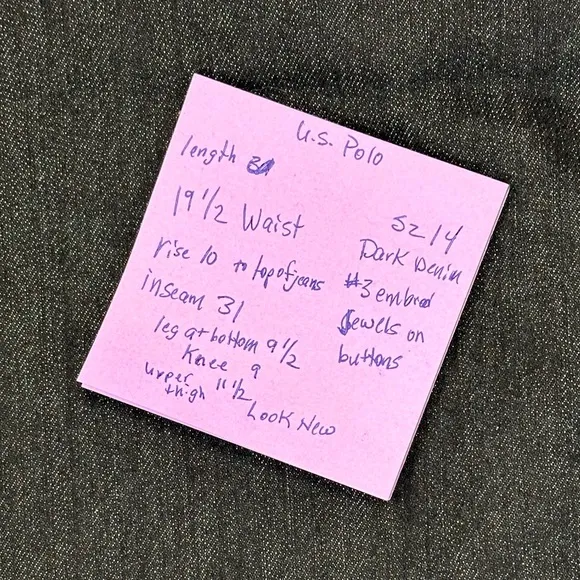 U.S. Polo
length
19 1/2 Waist
rise 10 to top of jeans
inseam 31
leg at bottom 9 1/2
Knee 9
upper 11 1/2
thigh
Look New
SZ 14
Dark Denim
#3 embrod
Jewels on
buttons